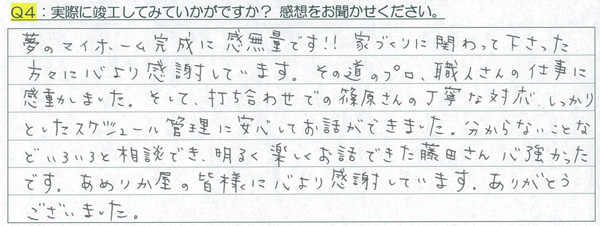 Q4：実際に竣工してみていかがですか？ 感想をお聞かせください。
夢のマイホーム完成に感無量です!! 家づくりに関わって下さった
方々に心より感謝しています。その道のプロ、職人さんの仕事に
感動しました。そして、打ち合わせでの篠原さんの丁寧な対応、しっかり
としたスケジュール管理に安心してお話ができました。分からないことな
どいろいろと相談でき、明るく楽しくお話できた藤田さん心強かった
です。あめりか屋の皆様に心より感謝しています。ありがとう
ございました。